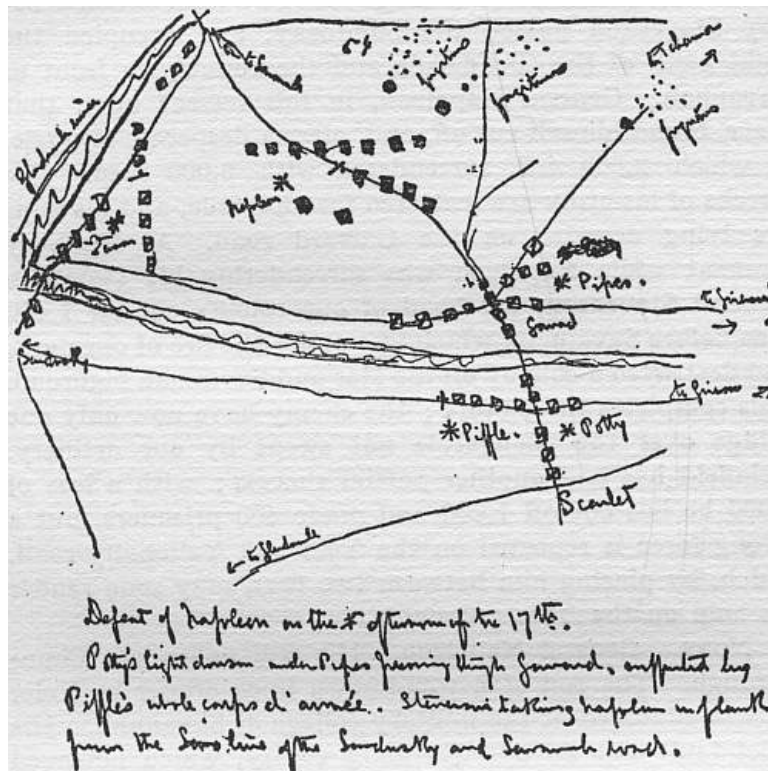 to Savannah
Glendarule river
fugitives
fugitives
fugitives
Napoleon
Pipes.
Garrard
to Grierson
Sandusky
to Grierson
Piffle. Potty
Scarlet
to Glendarule
Defeat of Napoleon on the afternoon of the 17th.
Potty's light division under Pipes pressing through Garrard, supported by
Piffle's whole corps d'armée. Stevenson taking Napoleon in flank
from the lines of the Sandusky and Savannah road.